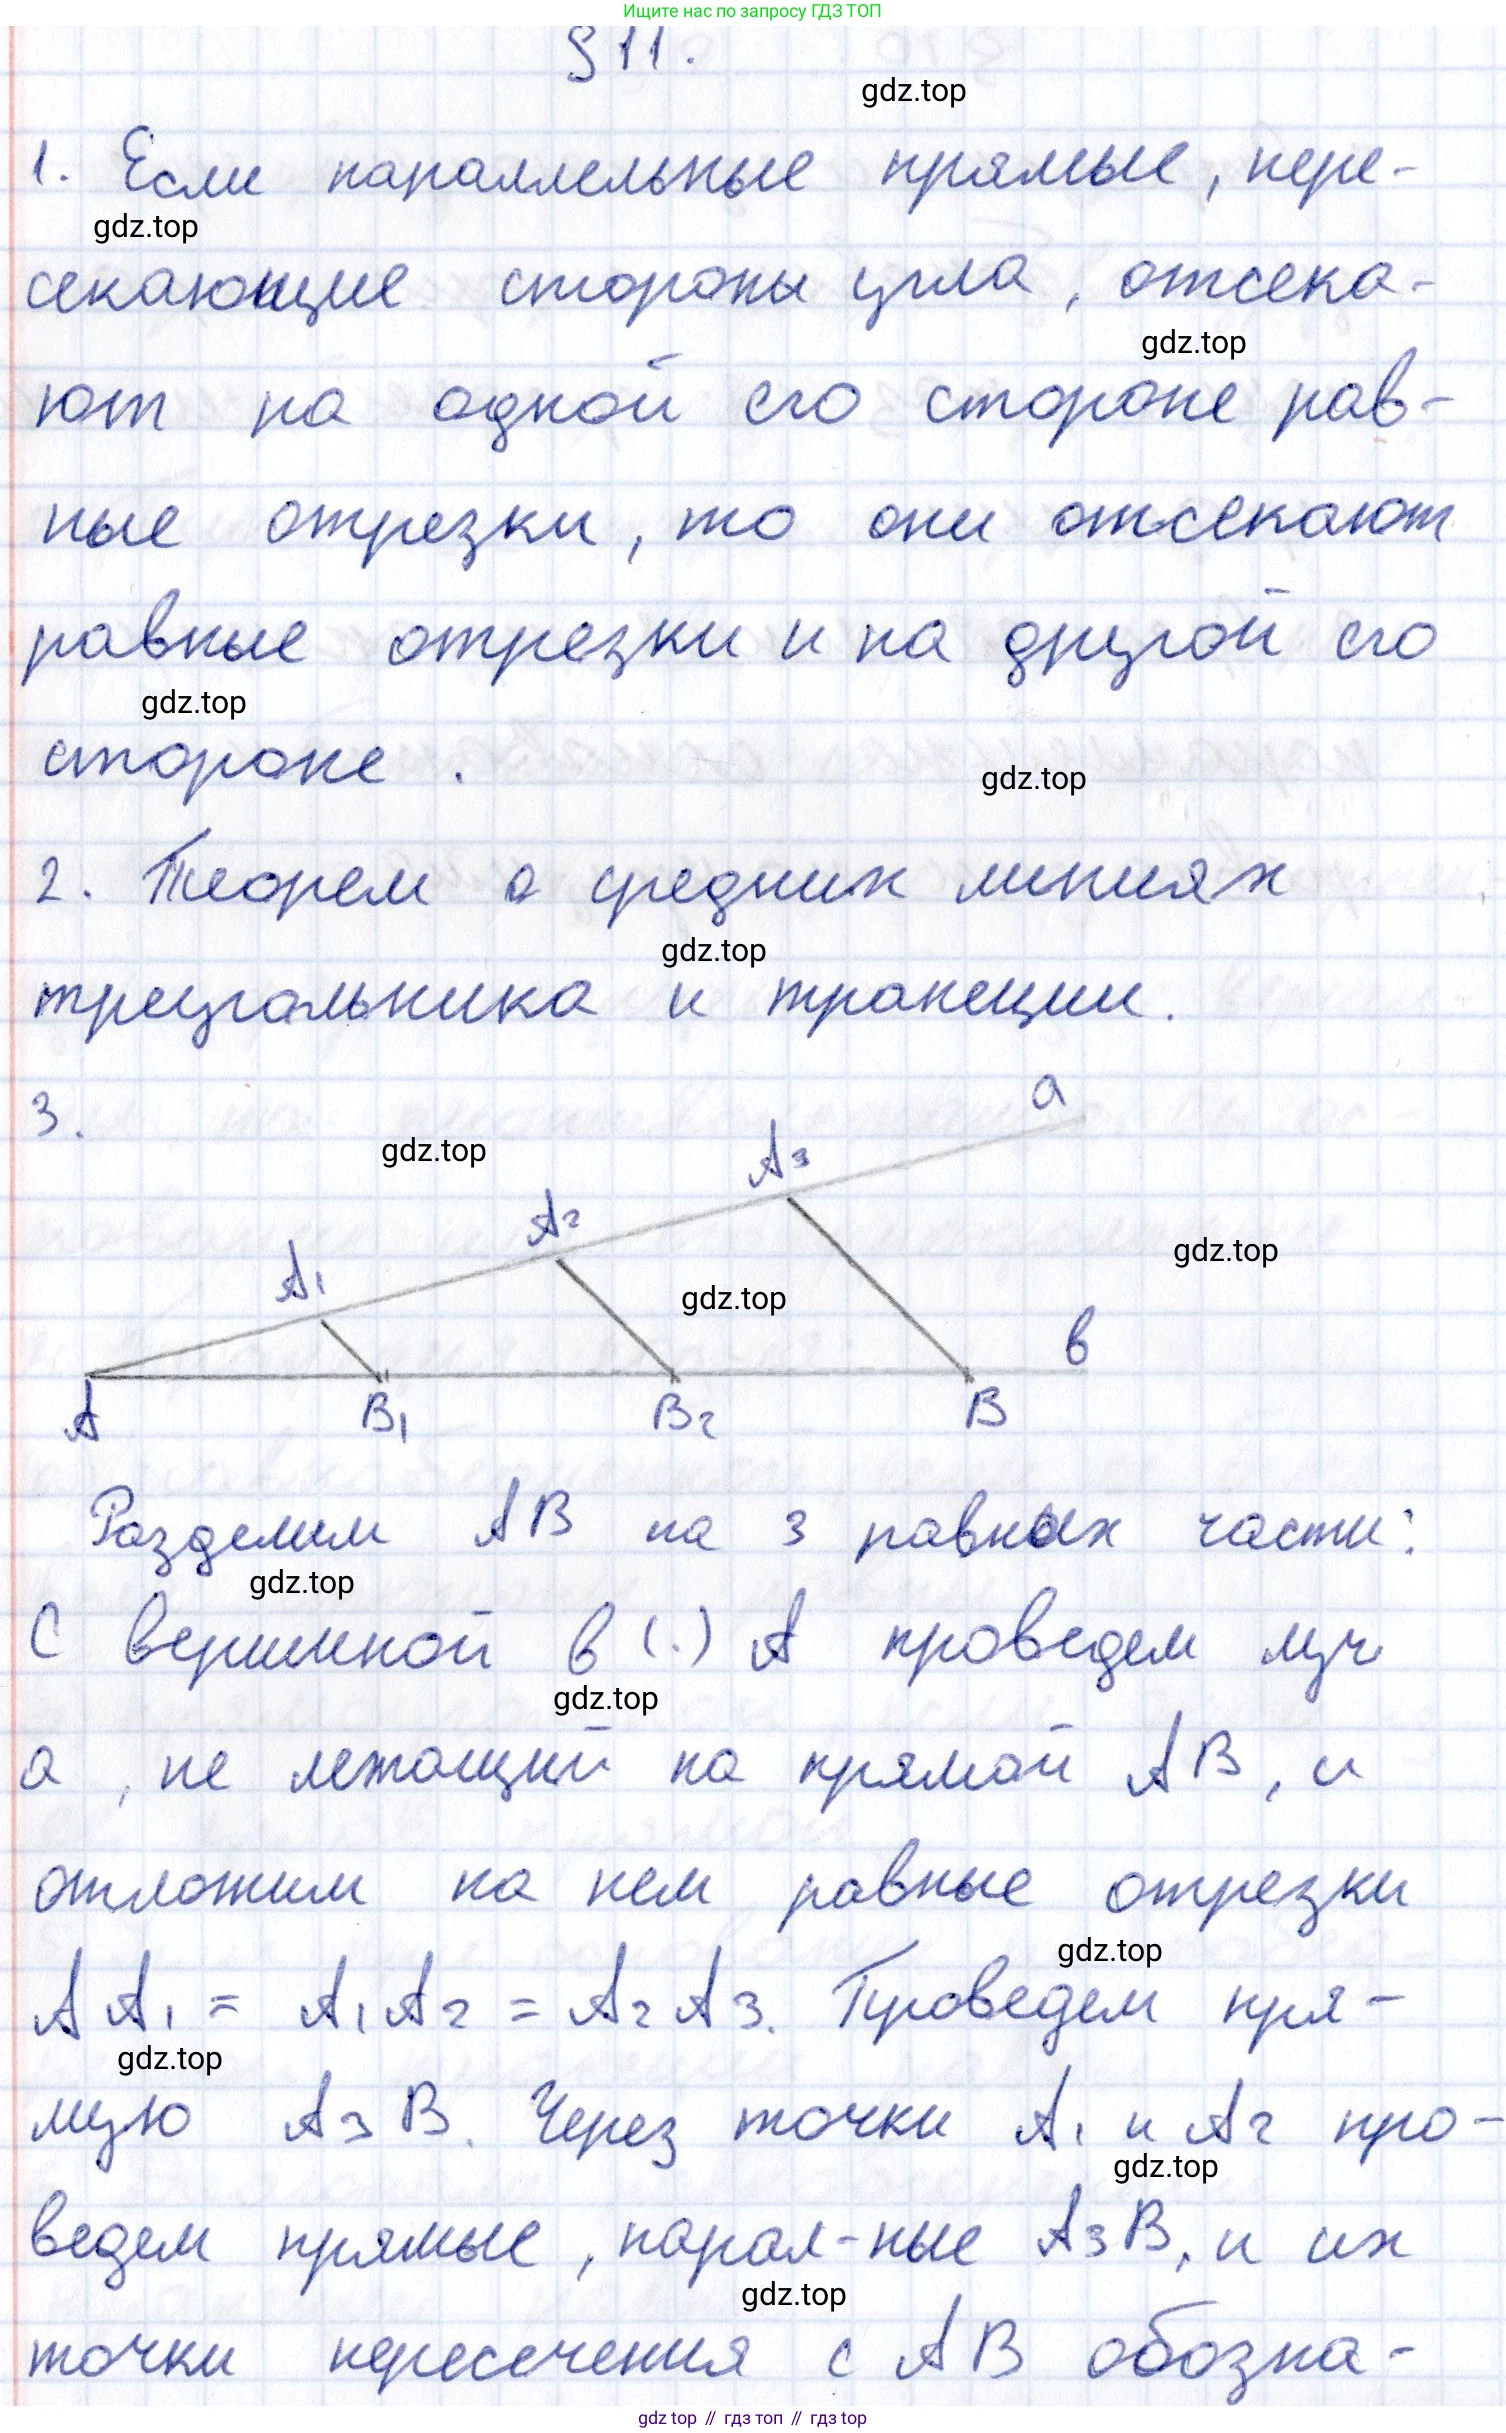 Ищите нас по запросу ГДЗ ТОП
§ 11.
gdz.top
1. Если параллельные прямые, пере-
gdz.top
секающие стороны угла, отсека-
gdz.top
ют на одной его стороне рав-
ные отрезки, то они отсекают
равные отрезки и на другой его
gdz.top
стороне.
gdz.top
2. Теорем о средних линиях
gdz.top
треугольника и трапеции.
3.
a
gdz.top
A3
A2
gdz.top
A1
gdz.top
в
A
B1
B2
B
Разделим AB на 3 равных части:
gdz.top
С вершиной в (.) A проведем луч
gdz.top
a, не лежащий на прямой AB, и
отложим на нем равные отрезки
gdz.top
AA1 = A1A2 = A2A3. Проведем пря-
gdz.top
мую A3B. Через точки A1 и A2 про-
gdz.top
ведем прямые, парал-ные A3B, и их
gdz.top
точки пересечения с AB обозна-
gdz top // гдз топ // гдз top